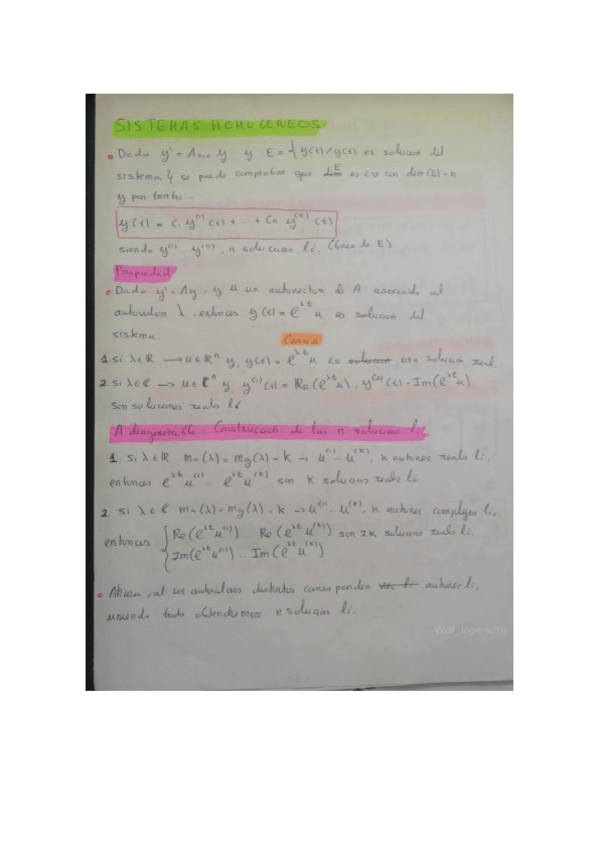 SISTEMAS HOMOGENEOS
• Dado y' = Anxn y y E = { y(t) / y(t) es solución del
sistema } se puede comprobar que E es con dim(E) = n
y por tanto...
y(t) = C₁ y⁽¹⁾(t) + ... + Cn y⁽ⁿ⁾(t)
siendo y⁽¹⁾ ... y⁽ⁿ⁾, n soluciones l.i. (base de E)
Propiedad
• Dado y' = Ay y u un autovector de A asociado al
autovalor λ, entonces y(t) = e^λt u es solución del
sistema.
1 si λ∈ℝ → u∈ℝⁿ y, y(t) = e^λt u es solucion una solución real
2 si λ∈ℂ → u∈ℂⁿ y, y⁽¹⁾(t) = Re(e^λt u), y⁽²⁾(t) = Im(e^λt u)
son soluciones reales li
A diagonalizable: Construcción de las n soluciones li
1. si λ∈ℝ ma(λ) = mg(λ) = k → u⁽¹⁾ ... u⁽ᵏ⁾, k autovec reales li,
entonces e^λt u⁽¹⁾ ... e^λt u⁽ᵏ⁾ son k soluciones reales li
2 si λ∈ℂ ma(λ) = mg(λ) = k → u⁽¹⁾ ... u⁽ᵏ⁾, k autovec complejos li,
entonces { Re(e^λt u⁽¹⁾) ... Re(e^λt u⁽ᵏ⁾) son 2k soluciones reales li
Im(e^λt u⁽¹⁾) ... Im(e^λt u⁽ᵏ⁾)
• Ahora, al ser autovalores distintos corresponden vec li autovec li,
uniendo todo obtendremos n soluciones li.